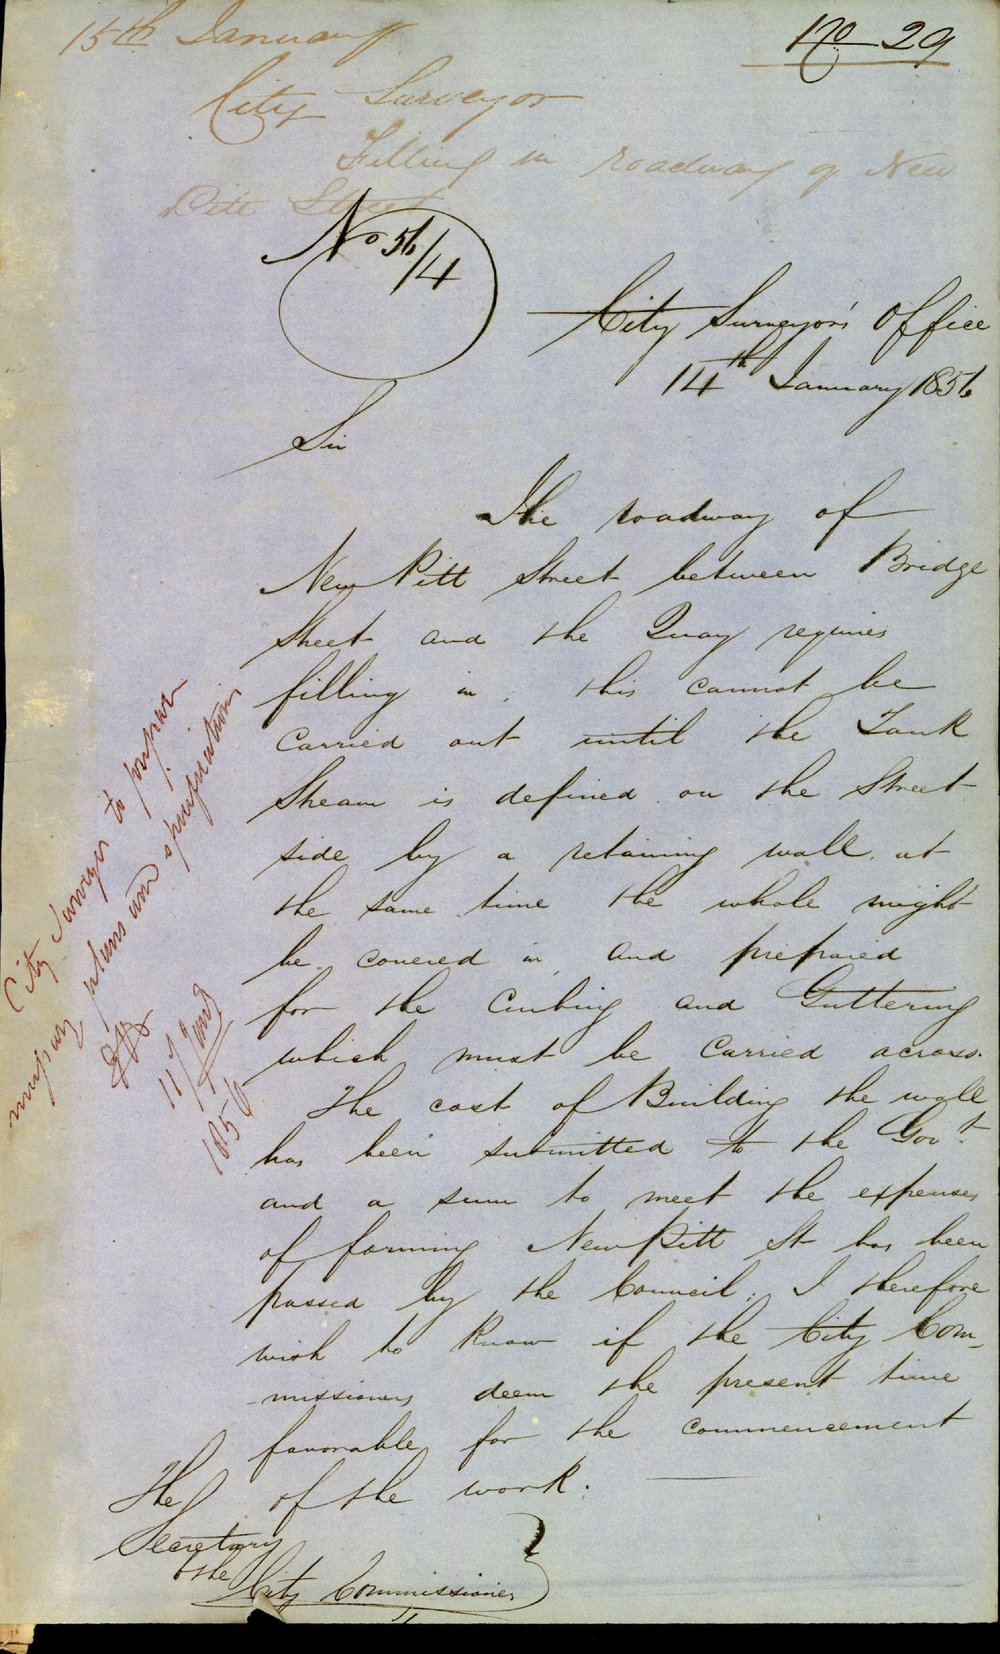 No 29
15th January
City Surveyor
Filling in roadway of New
Pitt Street
No 56/4
City Surveyor's Office
14th January 1856
Sir
The roadway of
New Pitt Street between Bridge
Street and the Quay requires
filling in, this cannot be
carried out until the Tank
Stream is defined on the Street
side by a retaining wall, at
the same time the whole might
be covered in and prepared
for the Curbing and Guttering
which must be carried across.
The cost of Building the wall
has been submitted to the Govt.
and a sum to meet the expenses
of forming New Pitt St has been
passed by the Council; I therefore
wish to know if the City Com-
-missioners deem the present time
favorable for the commencement
of the work.
The
Secretary
the
City Commissioners
City Surveyor to prepare
necessary plans and specifications
Jany
1856